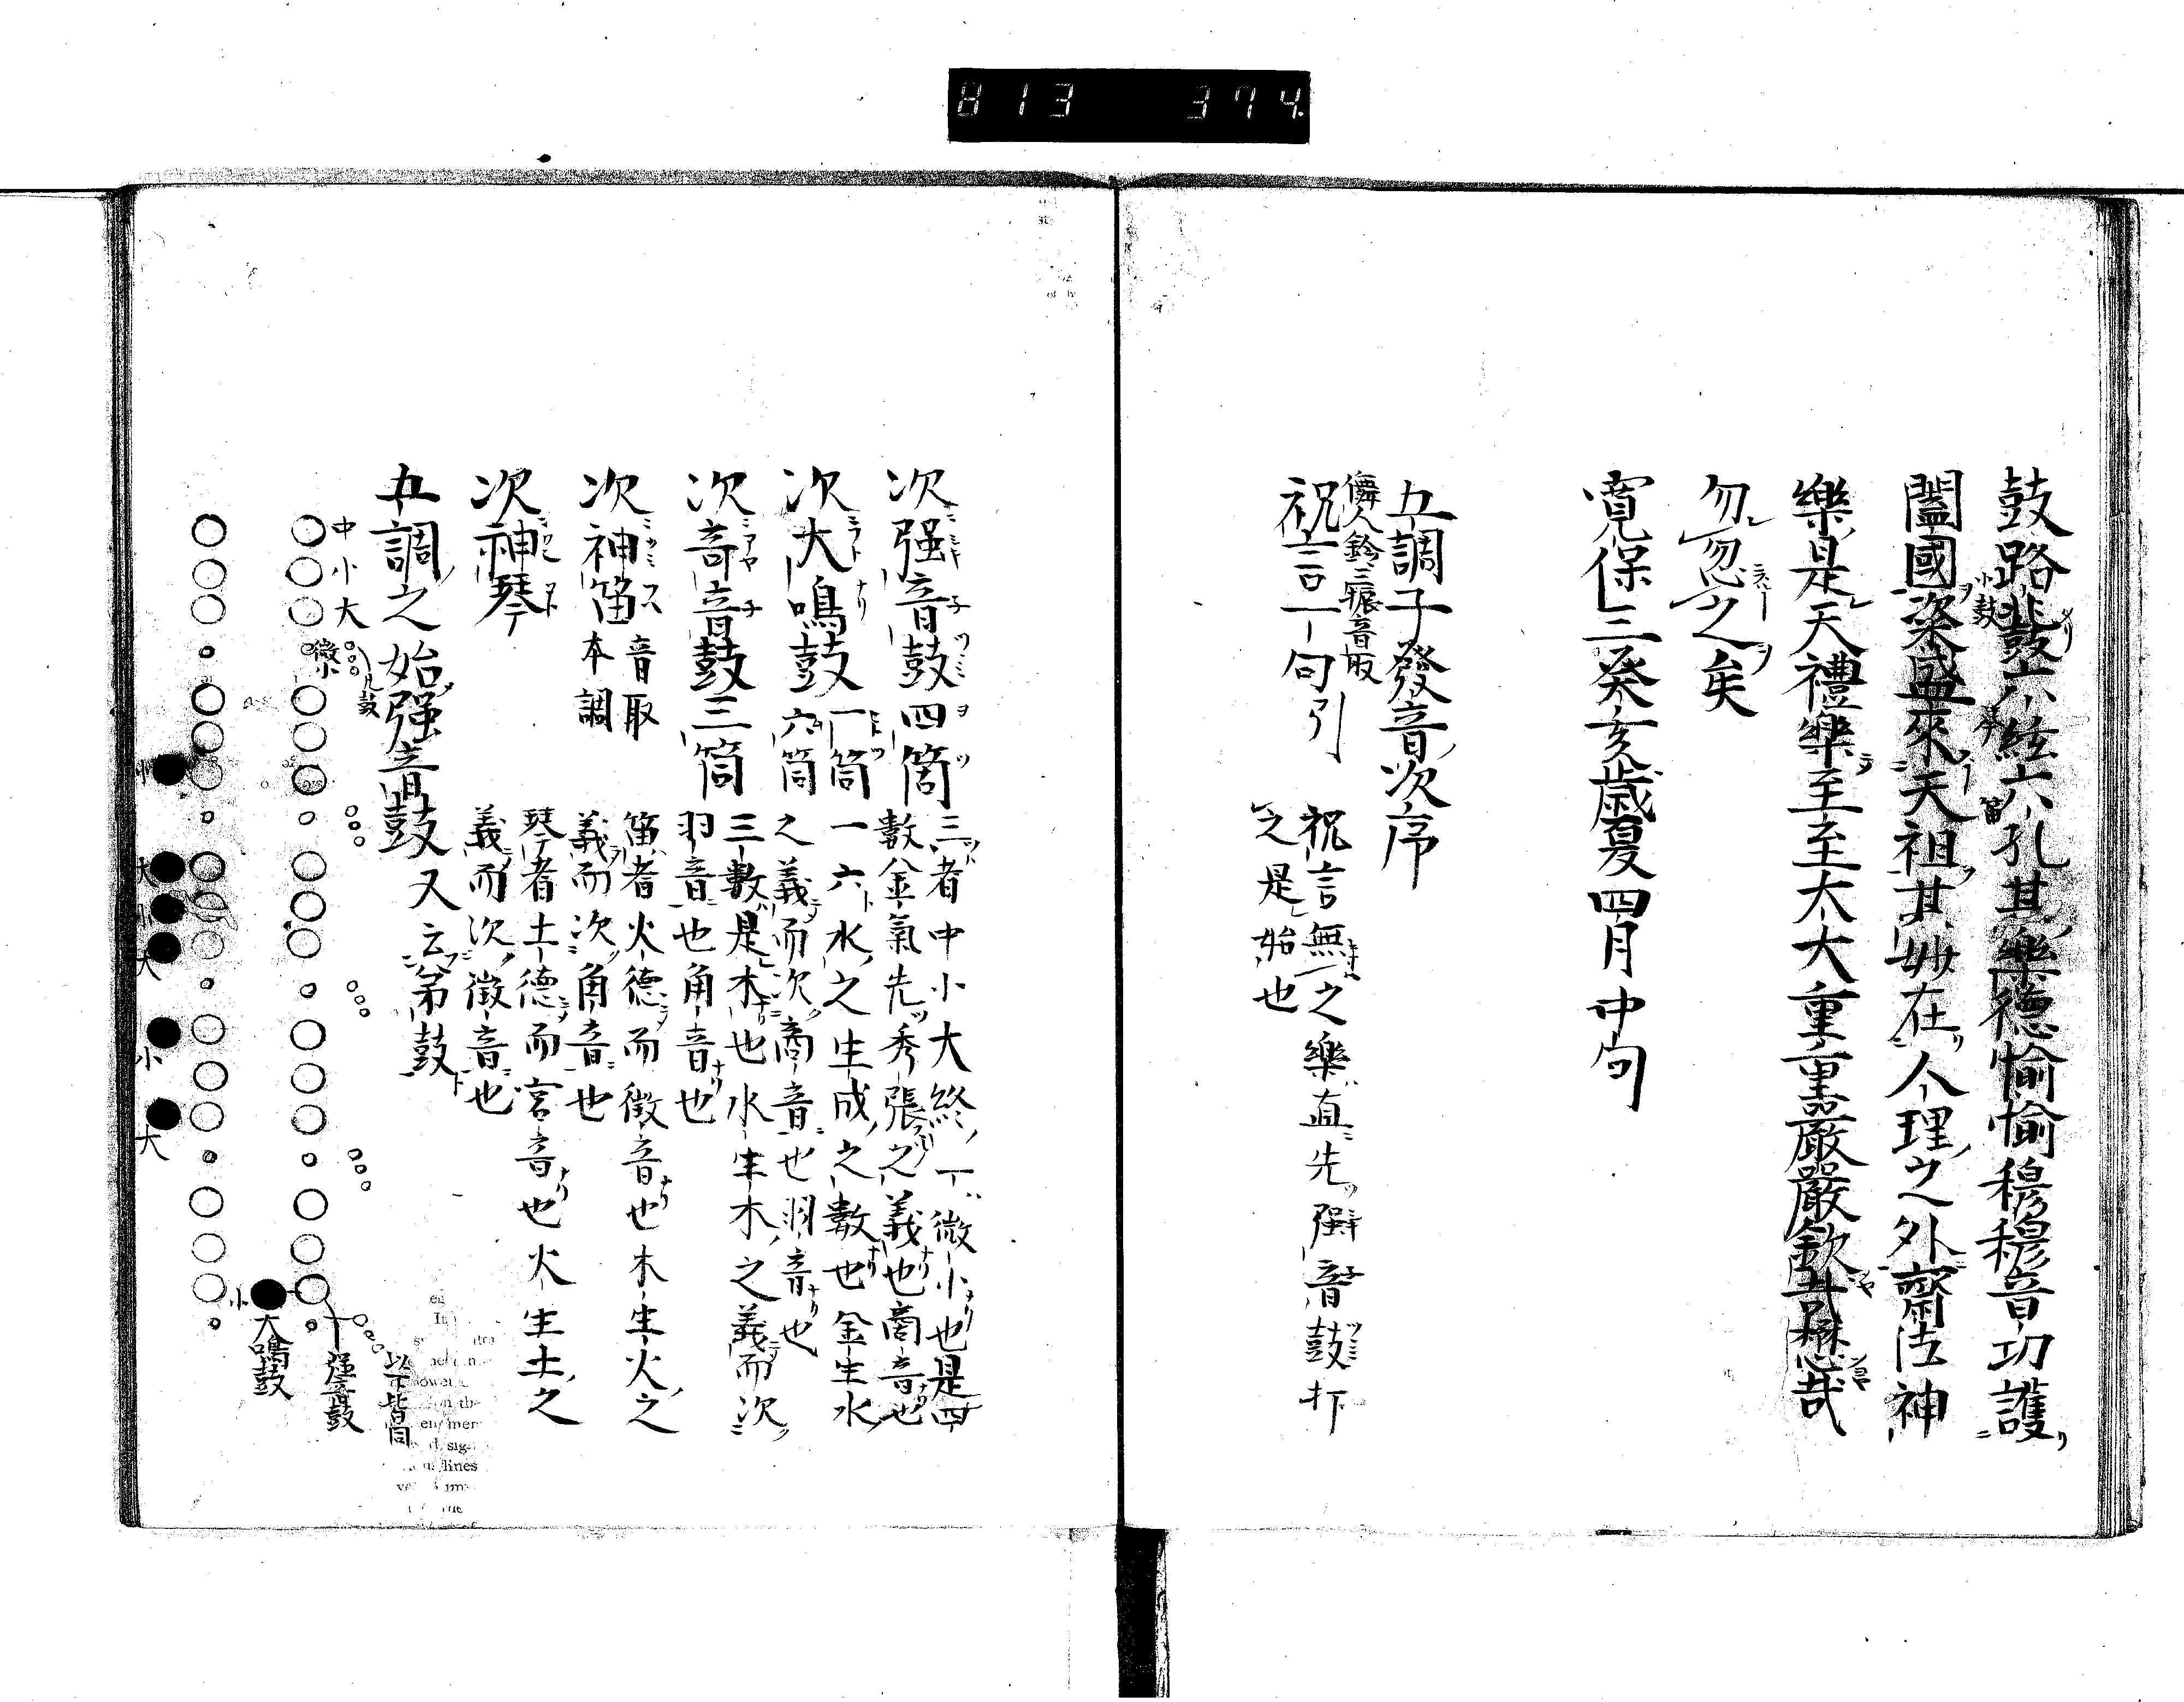 813 374.
鼓路鼗六絃六孔其樂德愉愉穆穆音功護
闔國粢盛來天祖其妙在人理之外齋法神
樂是天禮樂至至大大重重嚴嚴欽哉懋哉
勿忽之矣
寛保三癸亥歳夏四月中旬
五調子發音次序
鈴三振音取
祝言一句引
祝言無之樂直先強音鼓打
之是始也
次强音鼓四箇
三者中小大終一微小也是四
數金氣先秀張之義也商音也
次大鳴鼓一箇六箇
一六水之生成之數也金生水
之義而次商音也羽音也
次音鼓三箇
三數是木也水生木之義而次
羽音也角音也
次神笛 音取 本調
笛者火德而徵音也木生火之
義而次角音也
次神琴
琴者土德而宮音也火生土之
義而次徵音也
五調之始强音鼓又云弟鼓
中小大
微小
以下皆同
强音鼓
小
大鳴鼓
小
大
小
大
小
大